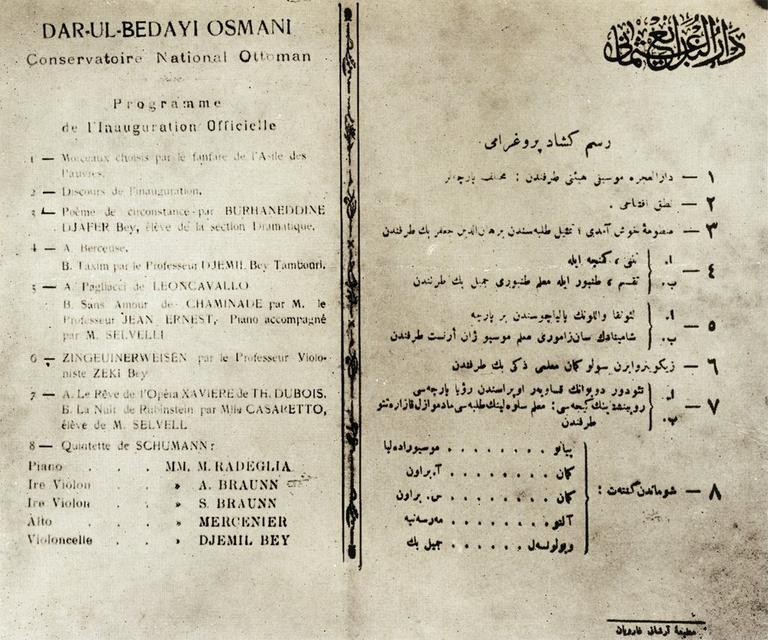 DAR-UL-BEDAYI OSMANI
Conservatoire National Ottoman
Programme
de l'Inauguration Officielle
1 — Morceaux choisis par le fanfare de l'Asile des
Pauvres.
2 — Discours de l'inauguration.
3 — Poème de circonstance par BURHANEDDINE
DJAFER Bey, élève de la section Dramatique.
4 — A. Berceuse.
B. Taxim par le Professeur DJEMIL Bey Tambouri.
5 — A. Pagliacci de LEONCAVALLO
B. Sans Amour de CHAMINADE par M. le
Professeur JEAN ERNEST, Piano accompagné
par M. SELVELLI
6 — ZINGEUINERWEISEN par le Professeur Violo-
niste ZEKI Bey
7 — A. Le Rêve de l'Opéra XAVIERE de TH. DUBOIS.
B. La Nuit de Rubinstein par Mlle CASARETTO,
élève de M. SELVELL
8 — Quintette de SCHUMANN :
Piano . . . MM. M. RADEGLIA
Ire Violon . . » A. BRAUNN
Ire Violon . . » S. BRAUNN
Alto . . . » MERCENIER
Violoncelle . . » DJEMIL BEY
دار البدايع عثمانی
رسم کشاد پروغرامی
١ — دارالعجزه موسیقی هیئتی طرفندن : مختلف پارچه‌لر
٢ — نطق افتتاحی .
٣ — منظومهٔ خوش آمدی ؛ تمثیل طلبه‌سندن برهان‌الدین جعفر بك طرفندن
٤ — ا. ننی ، کمنچه ایله
ب. تقسیم ، طنبور ایله معلم طنبوری جمیل بك طرفندن
٥ — ا. لئونقا واللونك پالیاچوسندن بر پارچه
ب. شامینادك سان‌زاموری معلم موسیو ژان ارنست طرفندن
٦ — زیکوینروایزن سولو کمان معلمی ذکی بك طرفندن
٧ — ا. تئودور دوبوانك قساویه‌ر اوپراسندن رؤیا پارچه‌سی
ب. روبینشتینك کیجه‌سی : معلم سلوه‌للینك طلبه‌سی مادموازل قازاره‌تتو
طرفندن
٨ — شوماندن کنتت :
پیانو . . . . . . . . موسیو راده‌لیا
کمان . . . . . . . . آ. براون
کمان . . . . . . . . س. براون
آلتو . . . . . . . . مه‌رسه‌نیه
ویولونسه‌ل . . . . . . جمیل بك
مطبعهٔ آرشاق غارویان